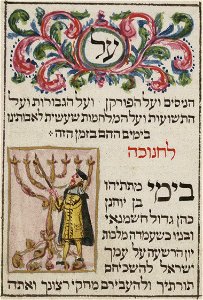 על
הניסים ועל הפורקן ועל הגבורות ועל
התשועות ועל המלחמות שעשית לאבותינו
בימים ההם בזמן הזה
לחנוכה
בימי מתיתיהו
בן יוחנן
כהן גדול חשמונאי
ובניו כשעמדה מלכות
יון הרשעה על עמך
ישראל להשכיחם
תורתיך ולהעבירם מחקי רצונך ואתה